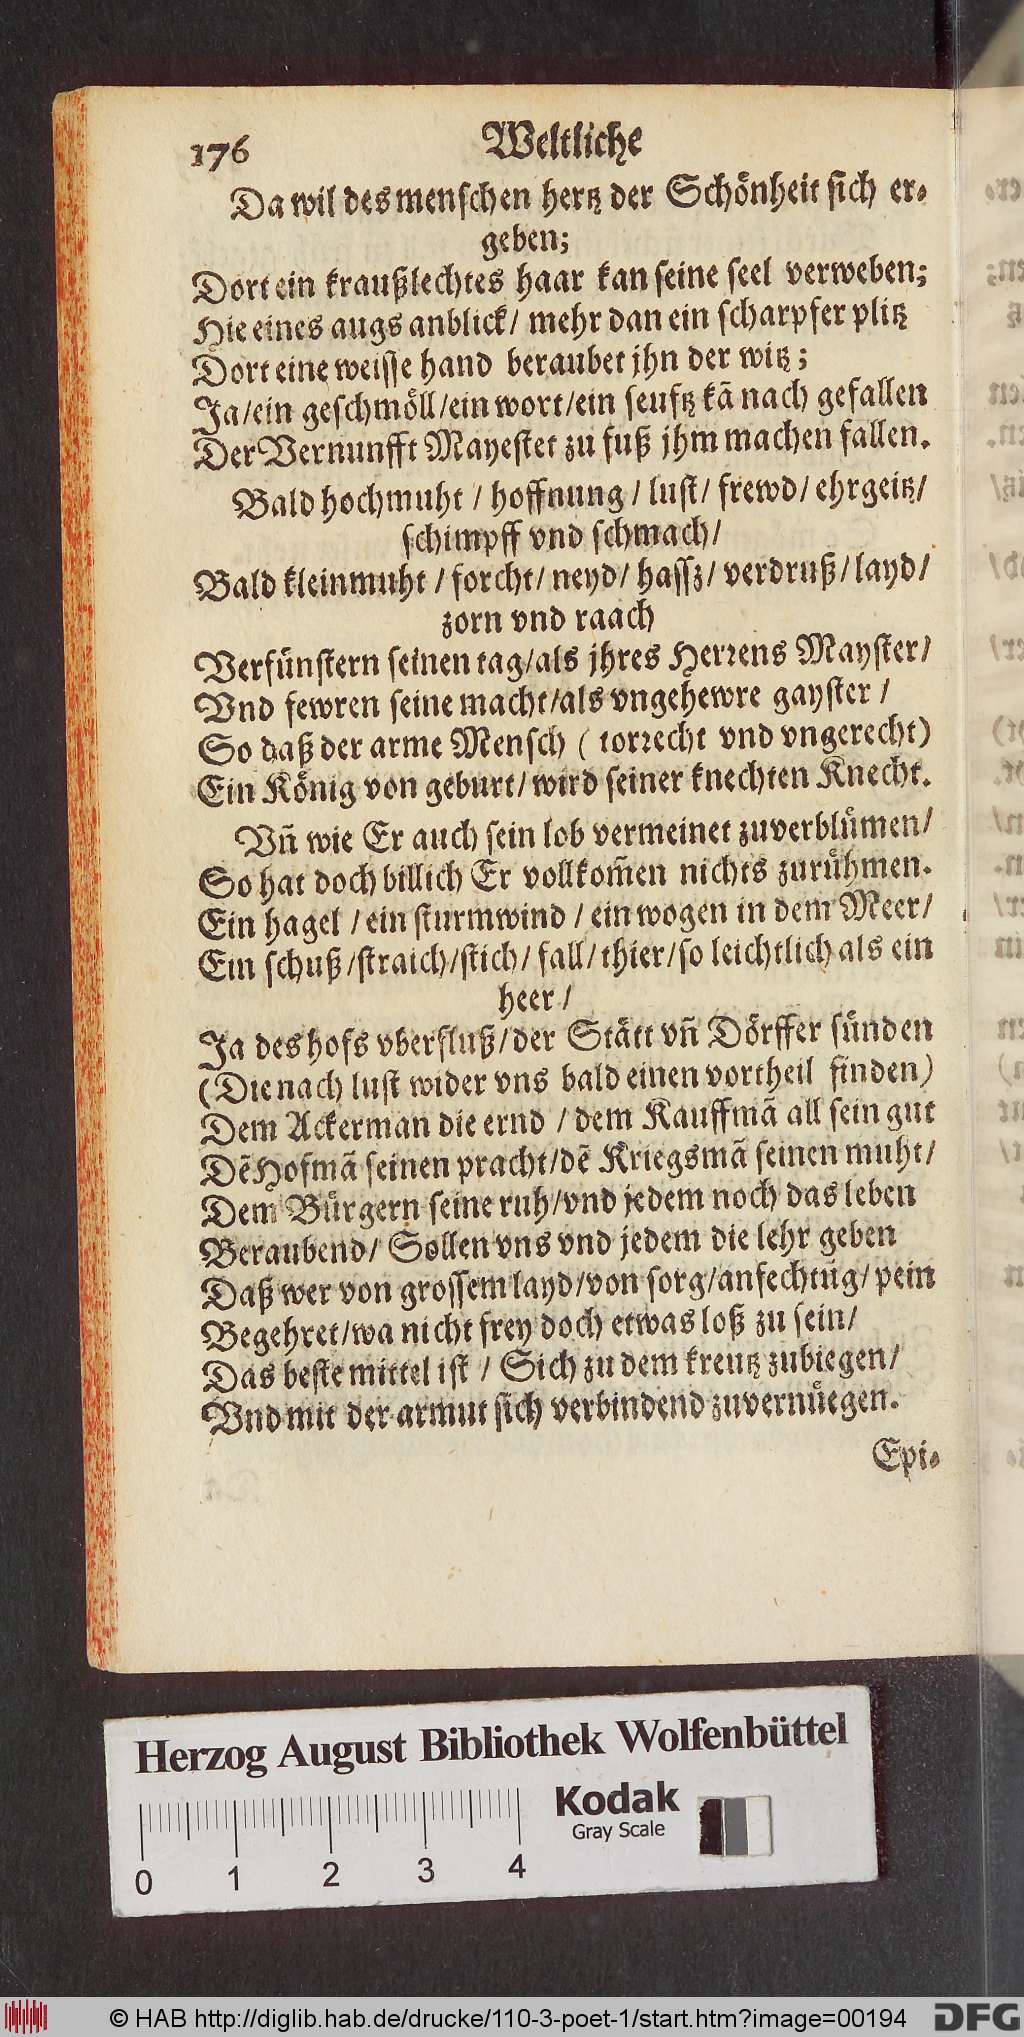 176 Weltliche
Da wil des menschen hertz der Schönheit sich er-
geben;
Dort ein kraußlechtes haar kan seine seel verweben;
Hie eines augs anblick/ mehr dan ein scharpfer plitz
Dort eine weisse hand beraubet jhn der witz;
Ja/ein geschmöll/ein wort/ein seuftz kã nach gefallen
Der Vernunfft Mayestet zu fuß jhm machen fallen.
Bald hochmuht / hoffnung / lust/ frewd/ ehrgeitz/
schimpff vnd schmach/
Bald kleinmuht / forcht/ neyd/ hassz/ verdruß/ layd/
zorn vnd raach
Verfünstern seinen tag/als jhres Herrens Mayster/
Vnd fewren seine macht/als vngehewre gayster /
So daß der arme Mensch ( torrecht vnd vngerecht)
Ein König von geburt/ wird seiner knechten Knecht.
Vñ wie Er auch sein lob vermeinet zuverblümen/
So hat doch billich Er vollkom̃en nichts zurühmen.
Ein hagel / ein sturmwind / ein wogen in dem Meer/
Ein schuß/straich/stich/ fall/ thier/so leichtlich als ein
heer /
Ja des hofs vberfluß/der Stätt vñ Dörffer sünden
(Die nach lust wider vns bald einen vortheil finden)
Dem Ackerman die ernd / dem Kauffmã all sein gut
Dẽ Hofmã seinen pracht/dẽ Kriegsmã seinen muht/
Dem Bürgern seine ruh/vnd jedem noch das leben
Beraubend/ Sollen vns vnd jedem die lehr geben
Daß wer von grossem layd/von sorg/anfechtũg/ pein
Begehret/wa nicht frey doch etwas loß zu sein/
Das beste mittel ist / Sich zu dem kreutz zubiegen/
Vnd mit der armut sich verbindend zuvernüegen.
Epi-
Herzog August Bibliothek Wolfenbüttel
Kodak
Gray Scale
0 1 2 3 4
© HAB http://diglib.hab.de/drucke/110-3-poet-1/start.htm?image=00194 DFG